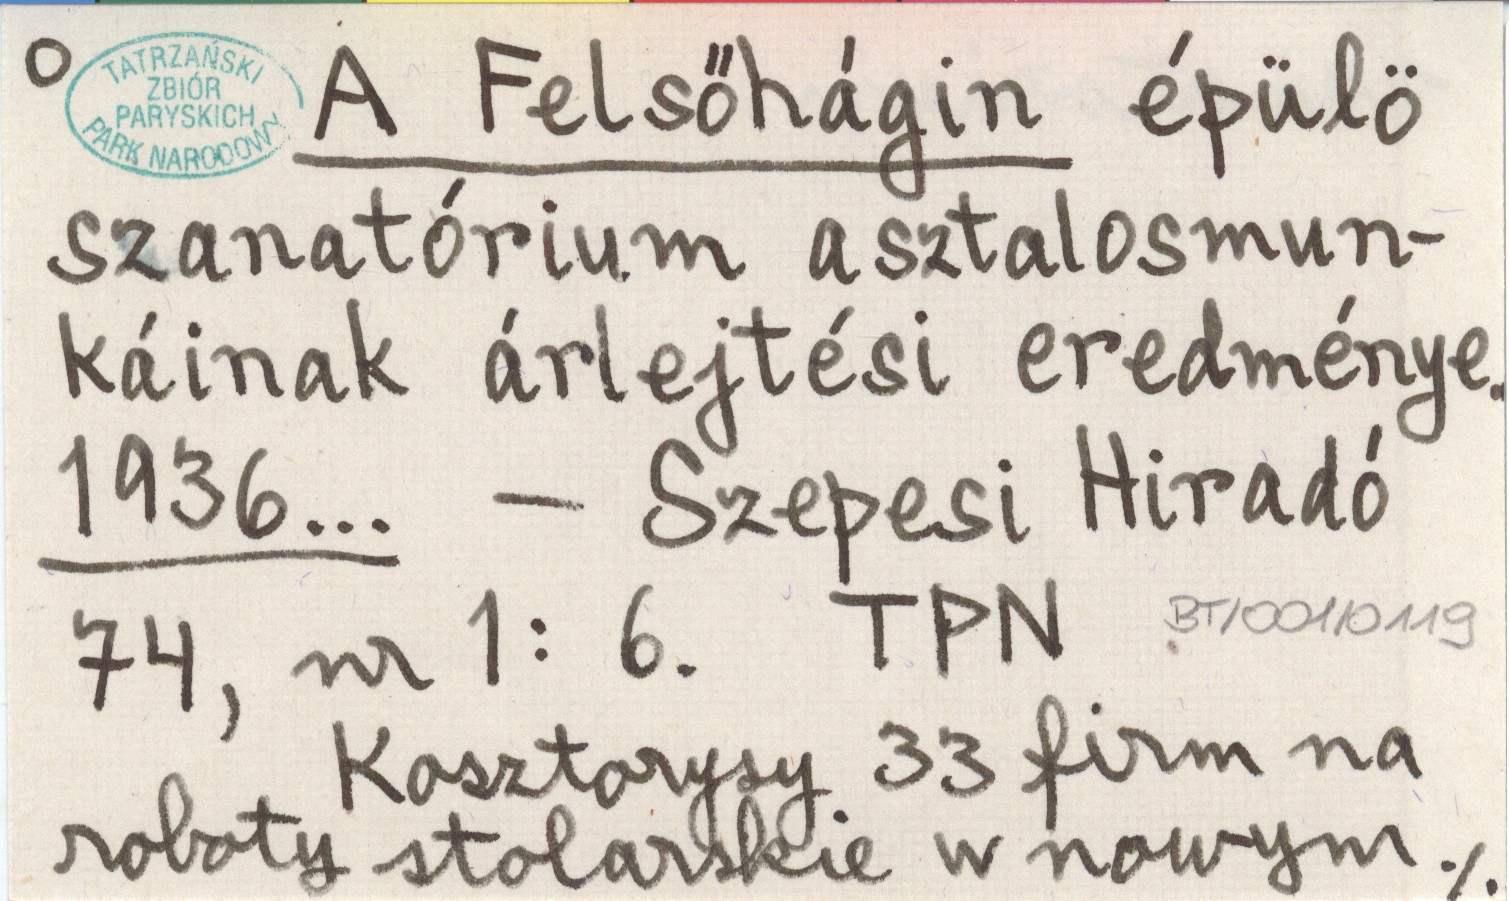 O
TATRZAŃSKI
ZBIÓR
PARYSKICH
PARK NARODOWY
A Felsőhágin épülö
szanatórium asztalosmun-
káinak árlejtési eredménye.
1936... — Szepesi Hiradó
74, nr 1: 6. TPN BT/001/0119
Kosztorysy 33 firm na
roboty stolarskie w nowym ./.